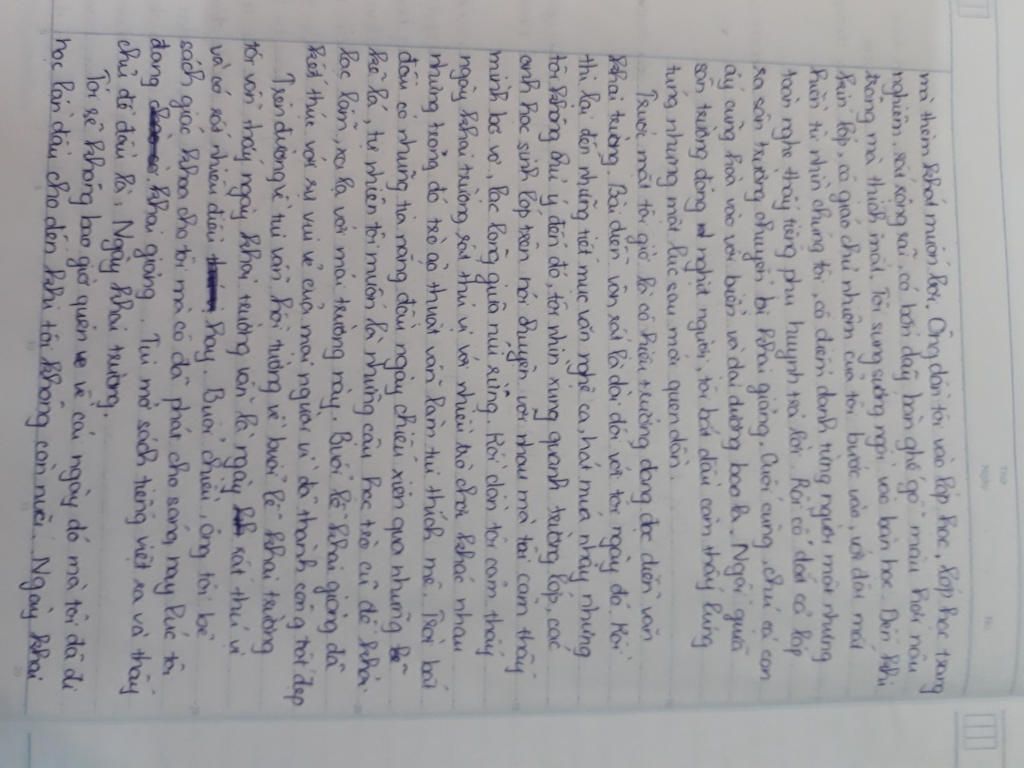 Thứ
Ngày
No.
mà thèm khát muốn bơi. Ông dẫn tôi vào lớp học, lớp học trang
nghiêm, rất rộng rãi, có bốn dãy bàn ghế gỗ màu hơi nâu
trông mà thích mắt. Tôi sung sướng ngồi vào bàn học. Đến khi
vào lớp, cô giáo chủ nhiệm của tôi bước vào, với đôi mắt
hiền từ nhìn chúng tôi, cô điểm danh từng người một nhưng
toàn nghe thấy tiếng phụ huynh trả lời. Rồi cô dắt cả lớp
ra sân trường chuẩn bị khai giảng. Cuối cùng, chú cá con
ấy cũng hoà vào với biển và đại dương bao la. Ngồi giữa
sân trường đông nghịt người, tôi bắt đầu cảm thấy lúng
túng nhưng một lúc sau mới quen dần.
Trước mắt tôi giờ là cô hiệu trưởng đang đọc diễn văn
khai trường. Bài diễn văn rất là dài đối với tôi ngày đó. Rồi
thì là đến những tiết mục văn nghệ ca hát múa nhảy nhưng
tôi không chú ý đến đó, tôi nhìn xung quanh trường lớp, các
anh học sinh lớp trên nói chuyện với nhau mà tôi cảm thấy
mình bơ vơ, lạc lõng giữa núi rừng. Rồi dần tôi cảm thấy
ngày khai trường rất thú vị với nhiều trò chơi khác nhau
nhưng trong đó trò ảo thuật vẫn làm tui thích mê. Trời bắt
đầu có những tia nắng đầu ngày chiếu xiên qua những
kẽ lá, tự nhiên tôi muốn là những cậu học trò cũ để khỏi
lạc lõm, xa lạ với mái trường này. Buổi lễ khai giảng đã
kết thúc với sự vui vẻ của mọi người vì đã thành công tốt đẹp
Trên đường về tui vẫn hồi tưởng về buổi lễ khai trường
tôi vẫn thấy ngày khai trường vẫn là ngày rất thú vị
và có rất nhiều điều hay. Buổi chiều, ông tôi bê
sách giáo khoa cho tôi mà cô đã phát cho sáng nay lúc tôi
đang khai giảng. Tui mở sách tiếng việt ra và thấy
chủ đề đầu là, Ngày khai trường.
Tôi sẽ không bao giờ quên về cái ngày đó mà tôi đã đi
học lần đầu cho đến khi tôi không còn nữa. Ngày khai